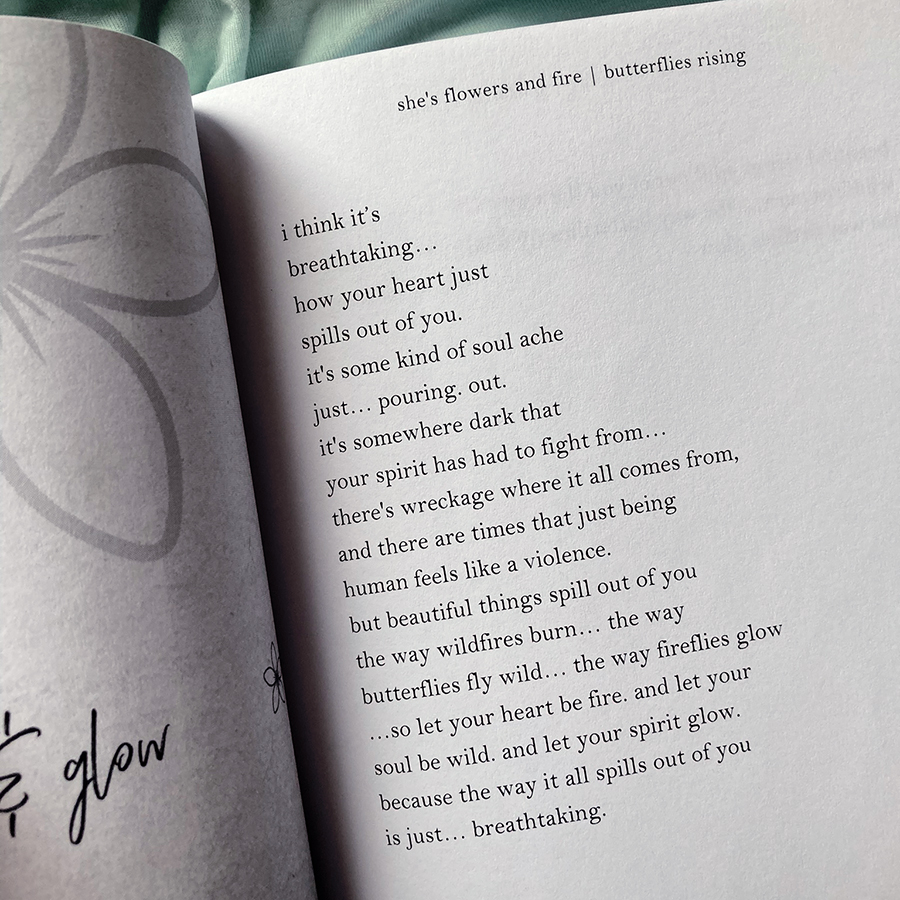 she's flowers and fire | butterflies rising
i think it's
breathtaking…
how your heart just
spills out of you.
it's some kind of soul ache
just… pouring. out.
it's somewhere dark that
your spirit has had to fight from…
there's wreckage where it all comes from,
and there are times that just being
human feels like a violence.
but beautiful things spill out of you
the way wildfires burn… the way
butterflies fly wild… the way fireflies glow
…so let your heart be fire. and let your
soul be wild. and let your spirit glow.
because the way it all spills out of you
is just… breathtaking.
& glow